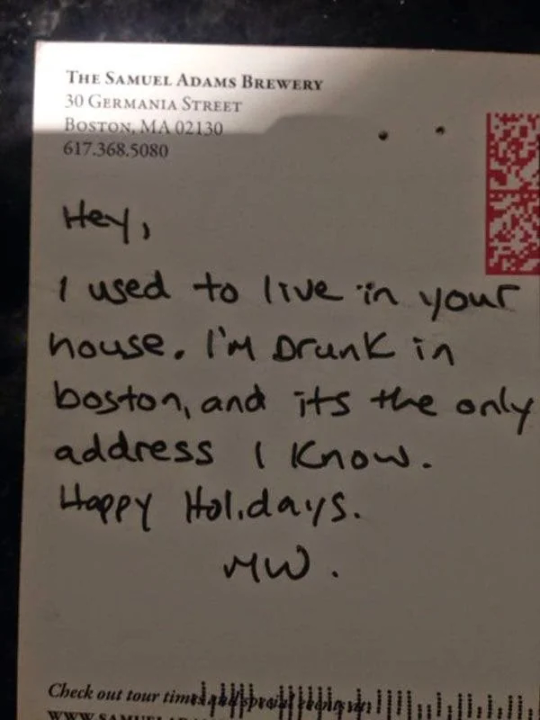 THE SAMUEL ADAMS BREWERY
30 GERMANIA STREET
BOSTON, MA 02130
617.368.5080
Hey,
I used to live in your
house. I'm Drunk in
boston, and its the only
address I Know.
Happy Holidays.
MW.
Check out tour times and special events at
WWW.SAMUELADA